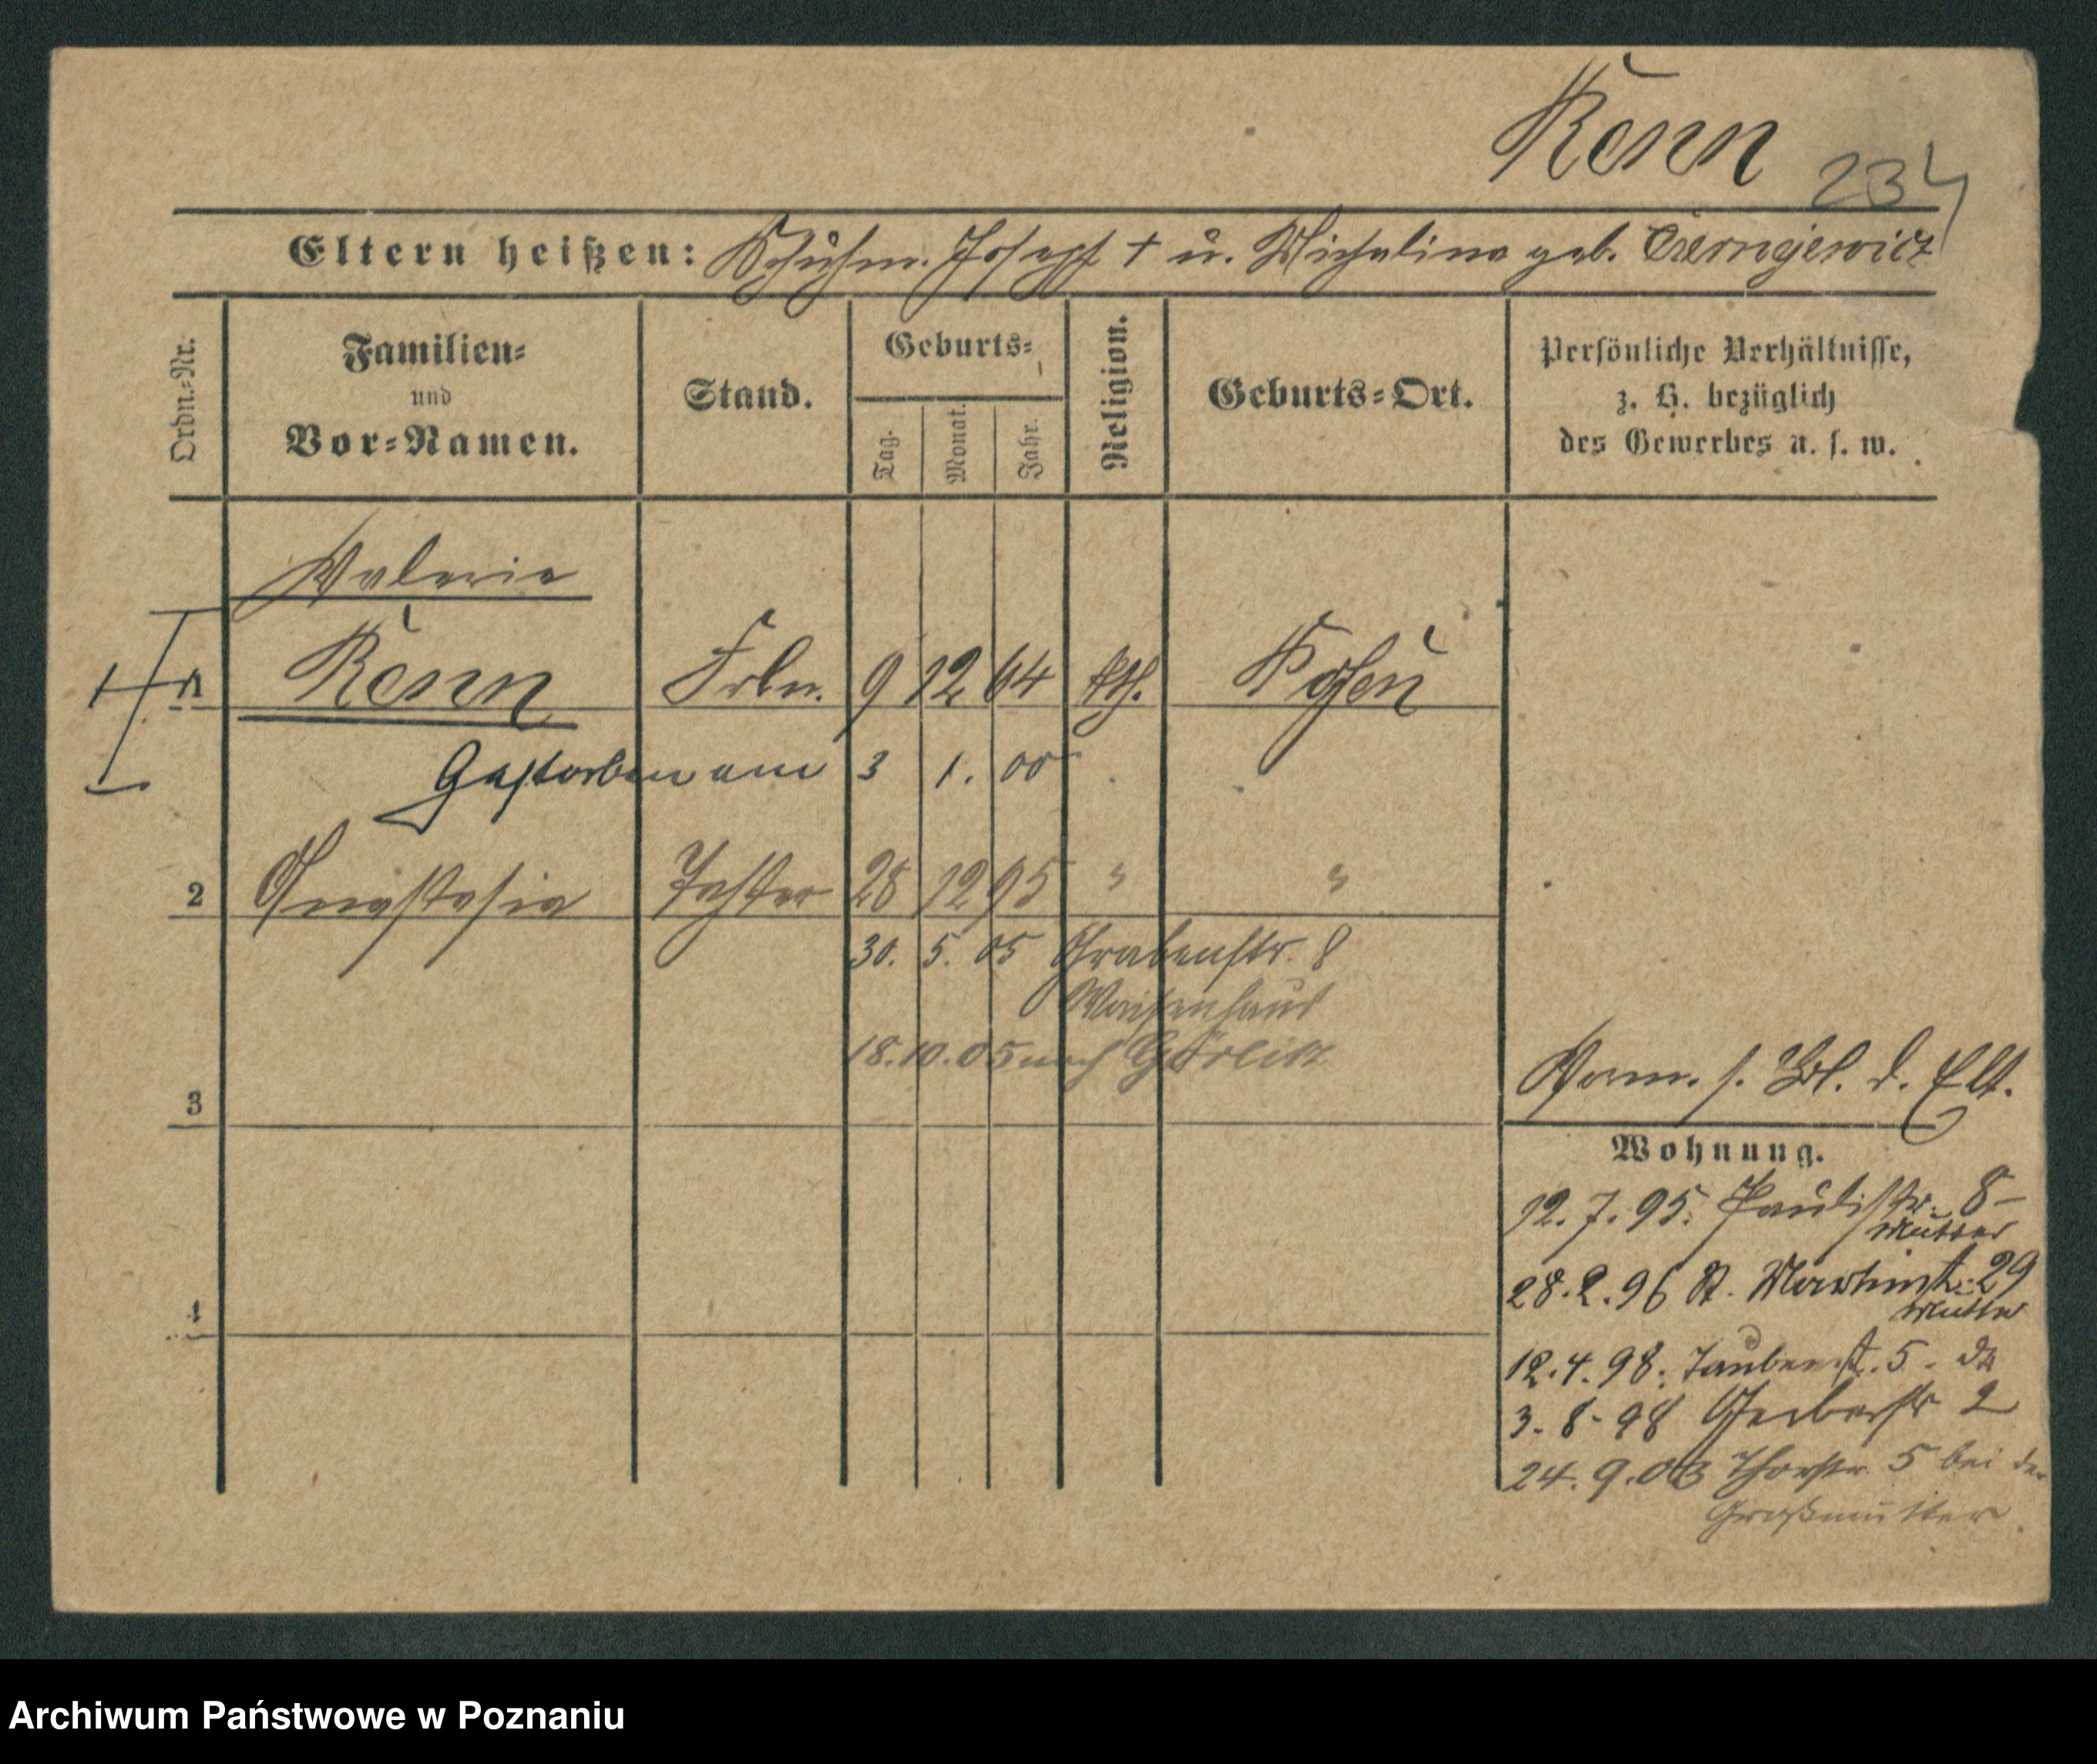 Renn
234
Eltern heißen: Schuhm. Joseph † u. Michalina geb.
Ordn.-Nr.
Familien-
und
Vor-Namen.
Stand.
Geburts-
Tag.
Monat.
Jahr.
Religion.
Geburts-Ort.
Persönliche Verhältnisse,
z. B. bezüglich
des Gewerbes u. s. w.
Valerie
Renn Frln. 9 12 64 kth. Posen
Gestorben am 3 1. 00
2 Anastasia Tochter 28 12 95 " "
30. 5. 05 Grabenstr. 8
Waisenhaus
18. 10. 05 nach Görlitz
3
Vorm. s. Bl. d. Elt.
Wohnung.
12. 7. 95. Paulistr. 8 –
Mutter
28. 2. 96 St. Martinst. 29
Mutter
4
12. 4. 98. Taubenst. 5.
3. 8. 98 Gerberstr 2
24. 9. 03 Thorstr. 5 bei der
Großmutter.
Archiwum Państwowe w Poznaniu